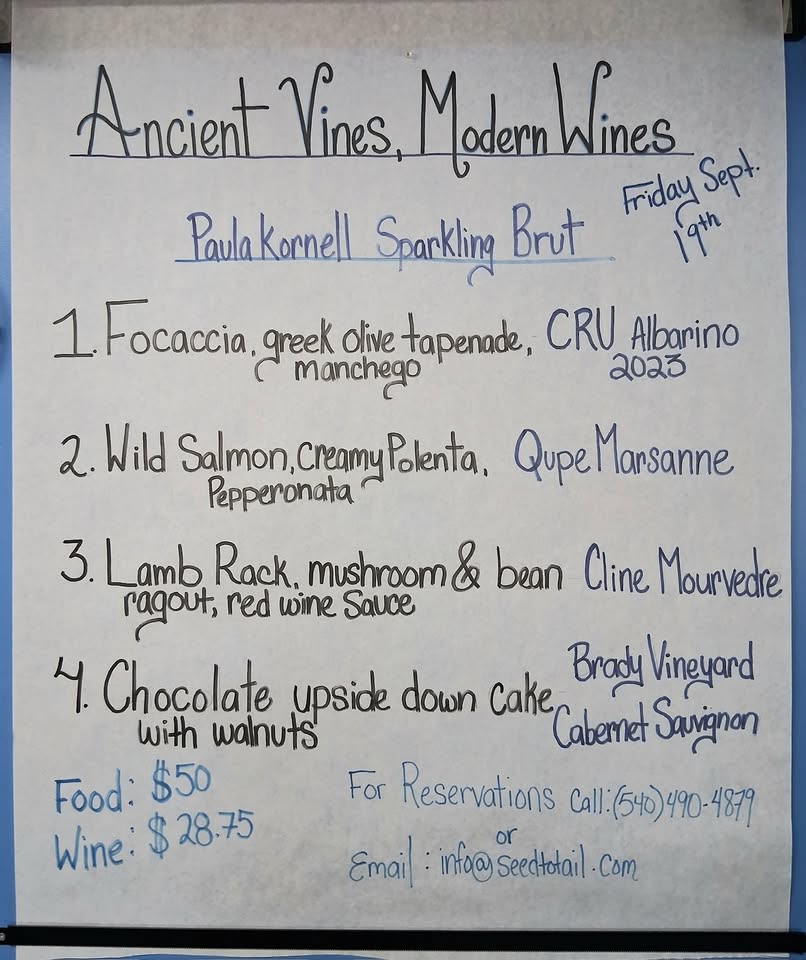 Ancient Vines, Modern Wines
Friday Sept. 19th
Paula Kornell Sparkling Brut
1. Focaccia, greek olive tapenade, CRU Albarino
manchego 2023
2. Wild Salmon, Creamy Polenta, Qupe Marsanne
Pepperonata
3. Lamb Rack, mushroom & bean Cline Mourvedre
ragout, red wine Sauce
4. Chocolate upside down cake Brady Vineyard
with walnuts Cabernet Sauvignon
Food: $50
Wine: $28.75
For Reservations Call: (540) 490-4879
or
Email: info@seedtotail.com